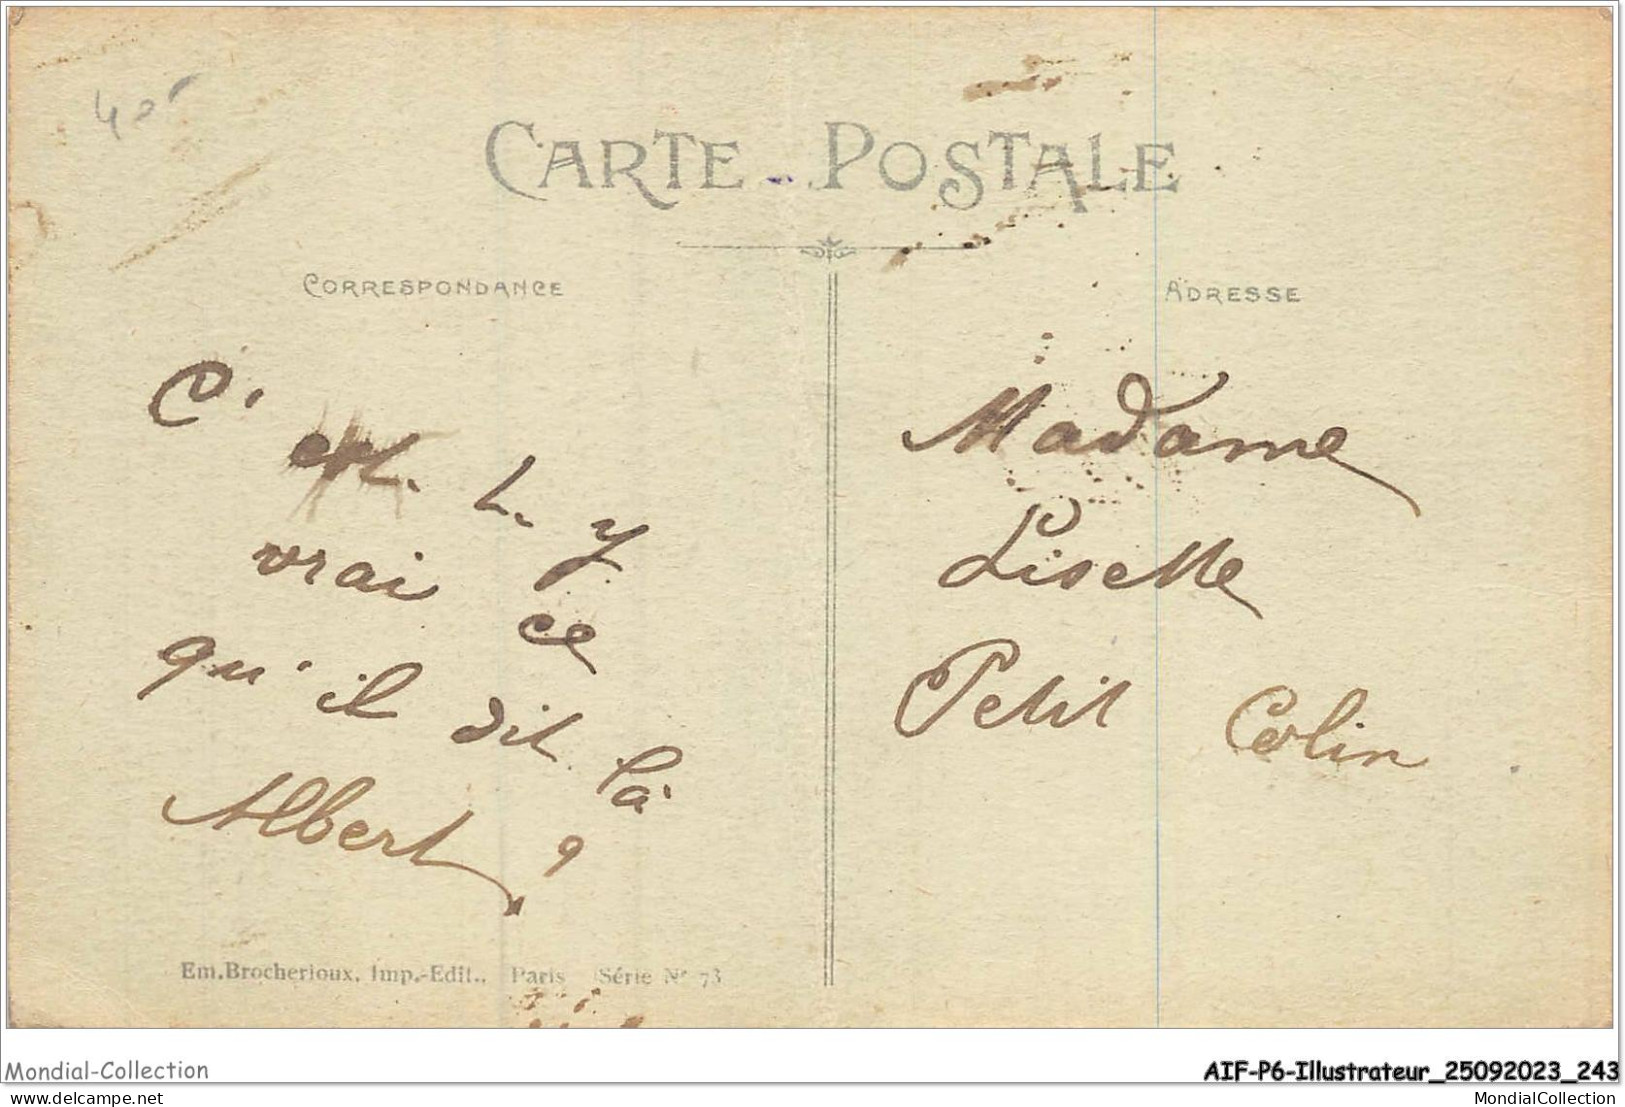 40
CARTE POSTALE
CORRESPONDANCE
ADRESSE
C'
est
vrai ce
qu'il dit là
Albert ?
Madame
Lisette
Petit Colin
Em. Brocherioux, Imp.-Edit., Paris Série N° 73
Mondial-Collection
AIF-P6-Illustrateur_25092023_243
delcampe.net
MondialCollection